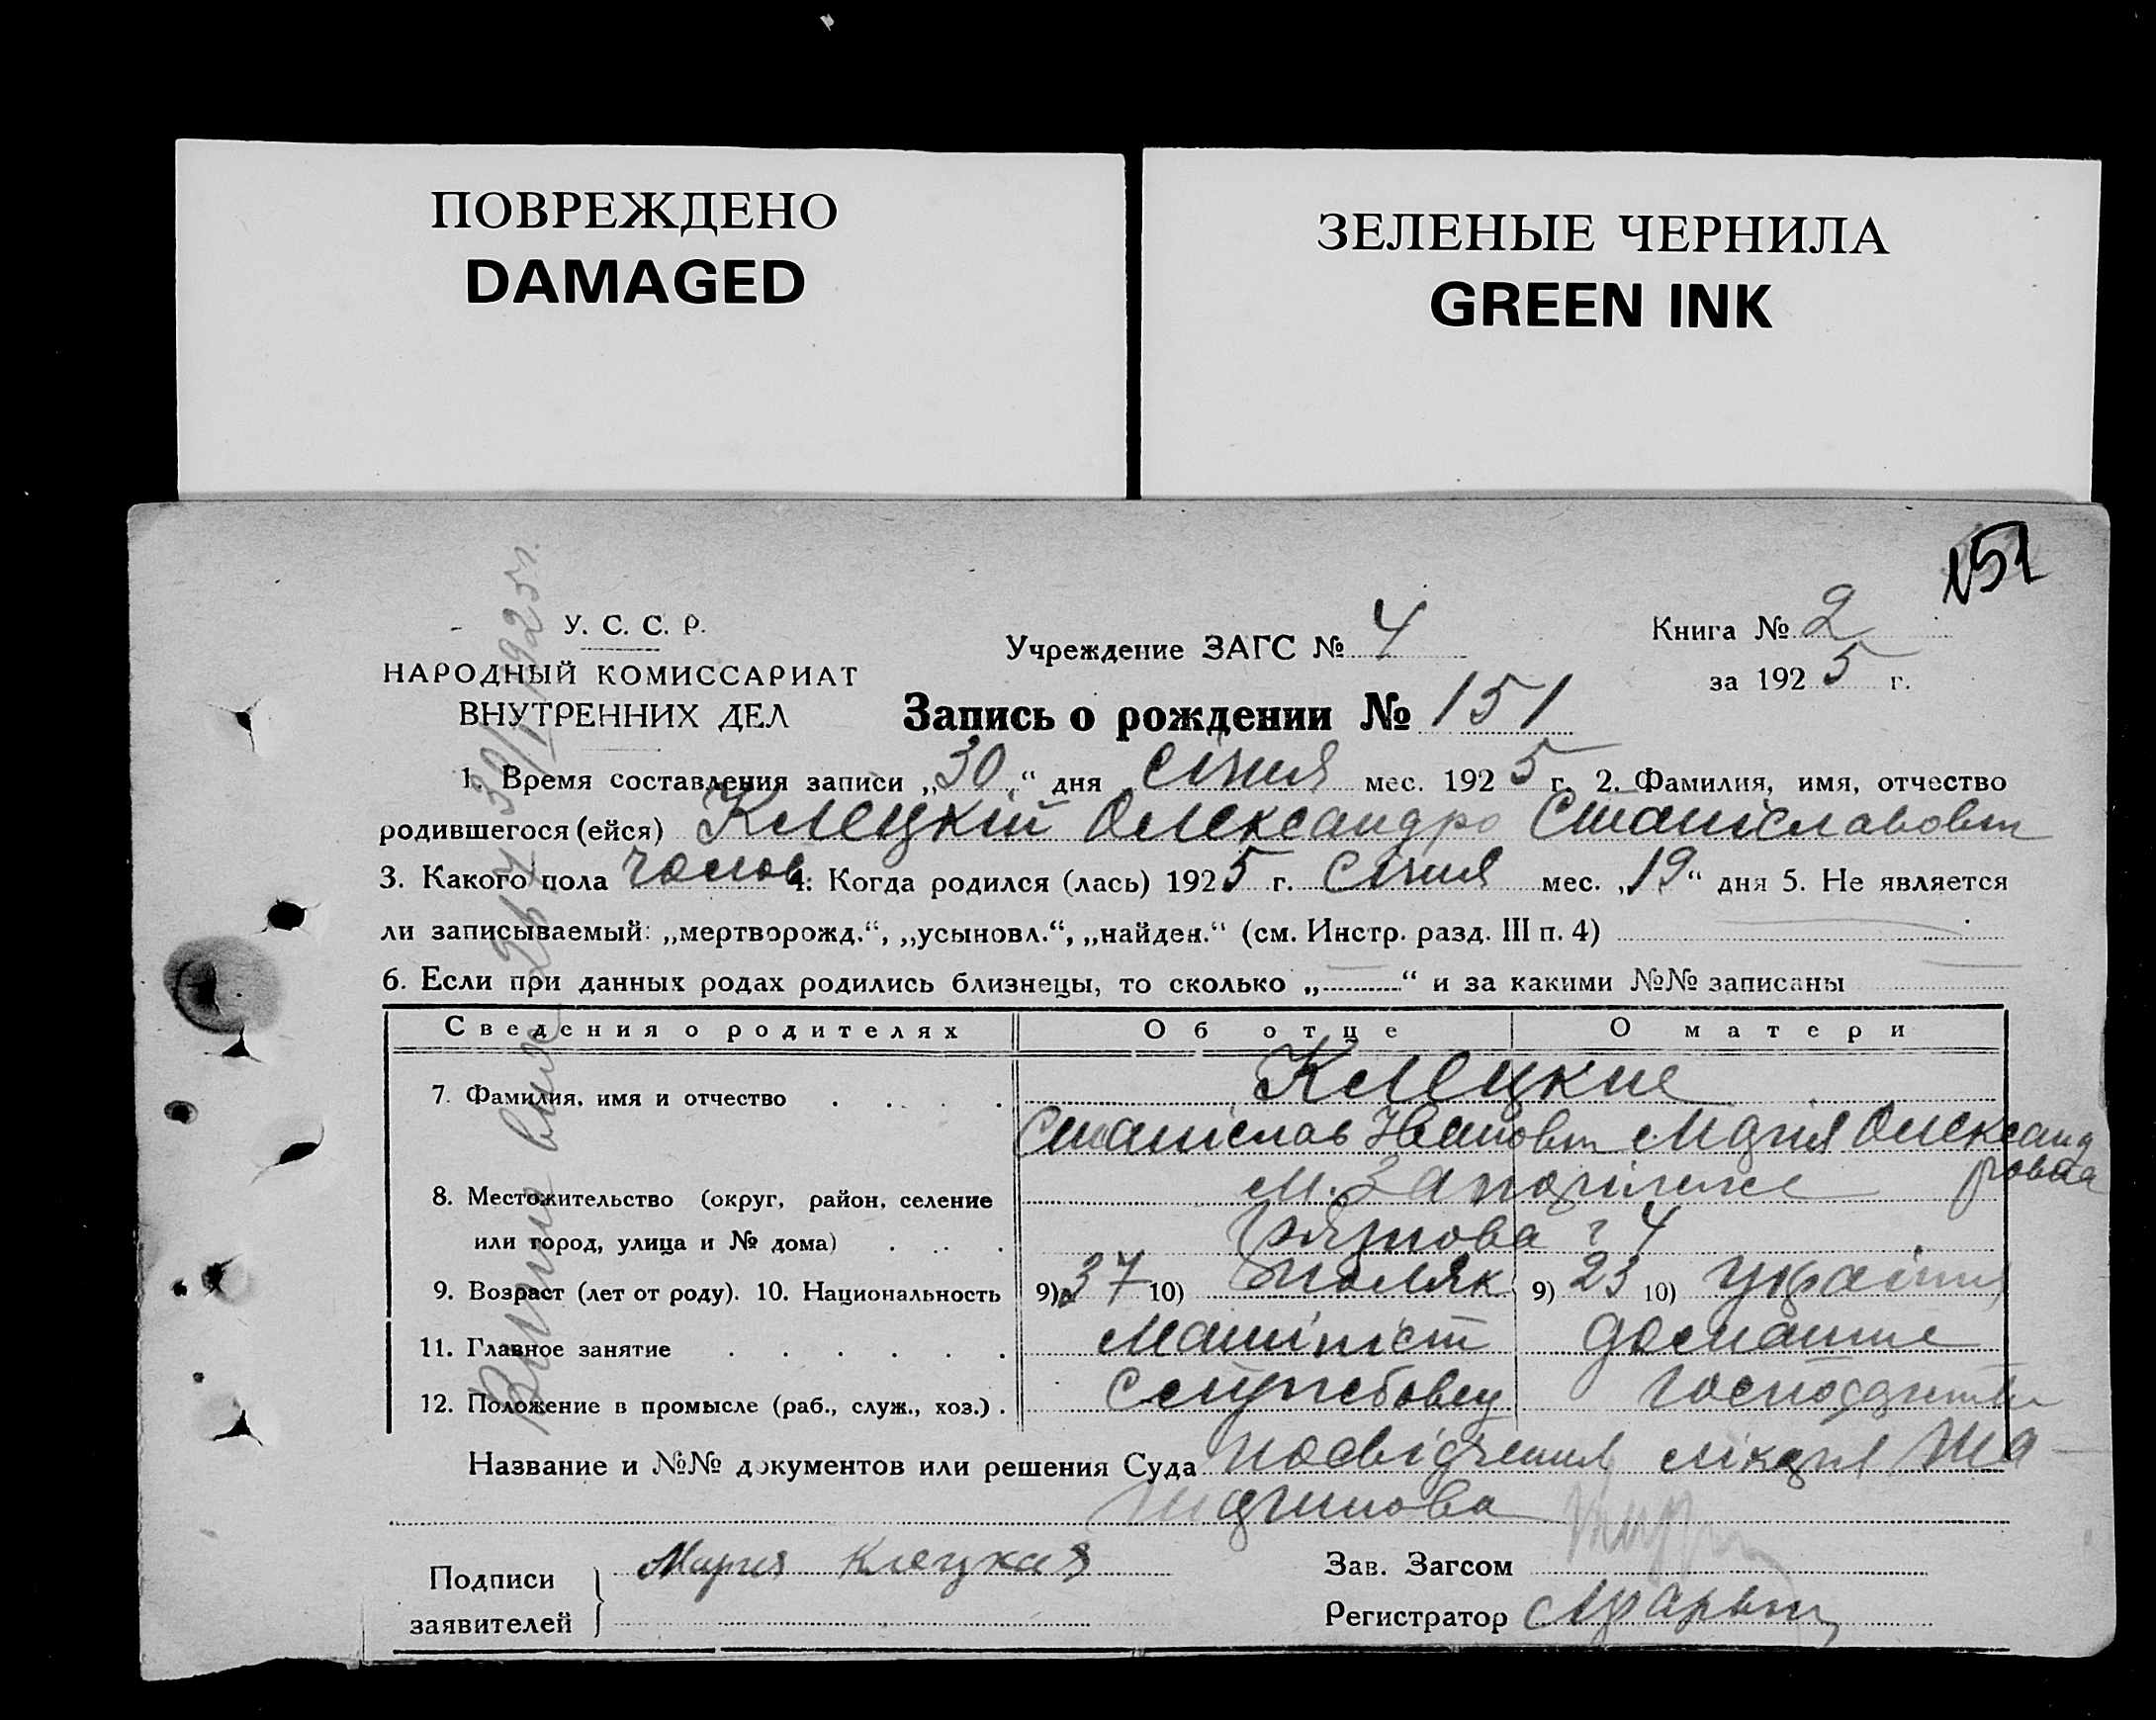 ПОВРЕЖДЕНО
DAMAGED
ЗЕЛЕНЫЕ ЧЕРНИЛА
GREEN INK
151
У. С. С. Р.
НАРОДНЫЙ КОМИССАРИАТ
ВНУТРЕННИХ ДЕЛ
Учреждение ЗАГС № 4
Книга № 2
за 1925 г.
Запись о рождении № 151
1. Время составления записи „30“ дня Січня мес. 1925 г. 2. Фамилия, имя, отчество
родившегося (ейся) Клецкій Олександро Станіславовт
3. Какого пола чолов. 4. Когда родился (лась) 1925 г. Січня мес. „19“ дня 5. Не является
ли записываемый: „мертворожд.“, „усыновл.“, „найден.“ (см. Инстр. разд. III п. 4)
6. Если при данных родах родились близнецы, то сколько „ “ и за какими №№ записаны
Сведения о родителях Об отце О матери
7. Фамилия, имя и отчество Клецкие
Станіслав Івановт Марія Олександ
ровна
8. Местожительство (округ, район, селение м. Запоріжже
или город, улица и № дома) 4
9. Возраст (лет от роду). 10. Национальность 9) 37 10) поляк 9) 23 10)
11. Главное занятие Машініст домашне
12. Положение в промысле (раб., служ., хоз.) Службовец
Название и №№ документов или решения Суда посвідчення лікаря
Подписи
заявителей
Мария Клецкая
Зав. Загсом
Регистратор
30/I 1925 г.